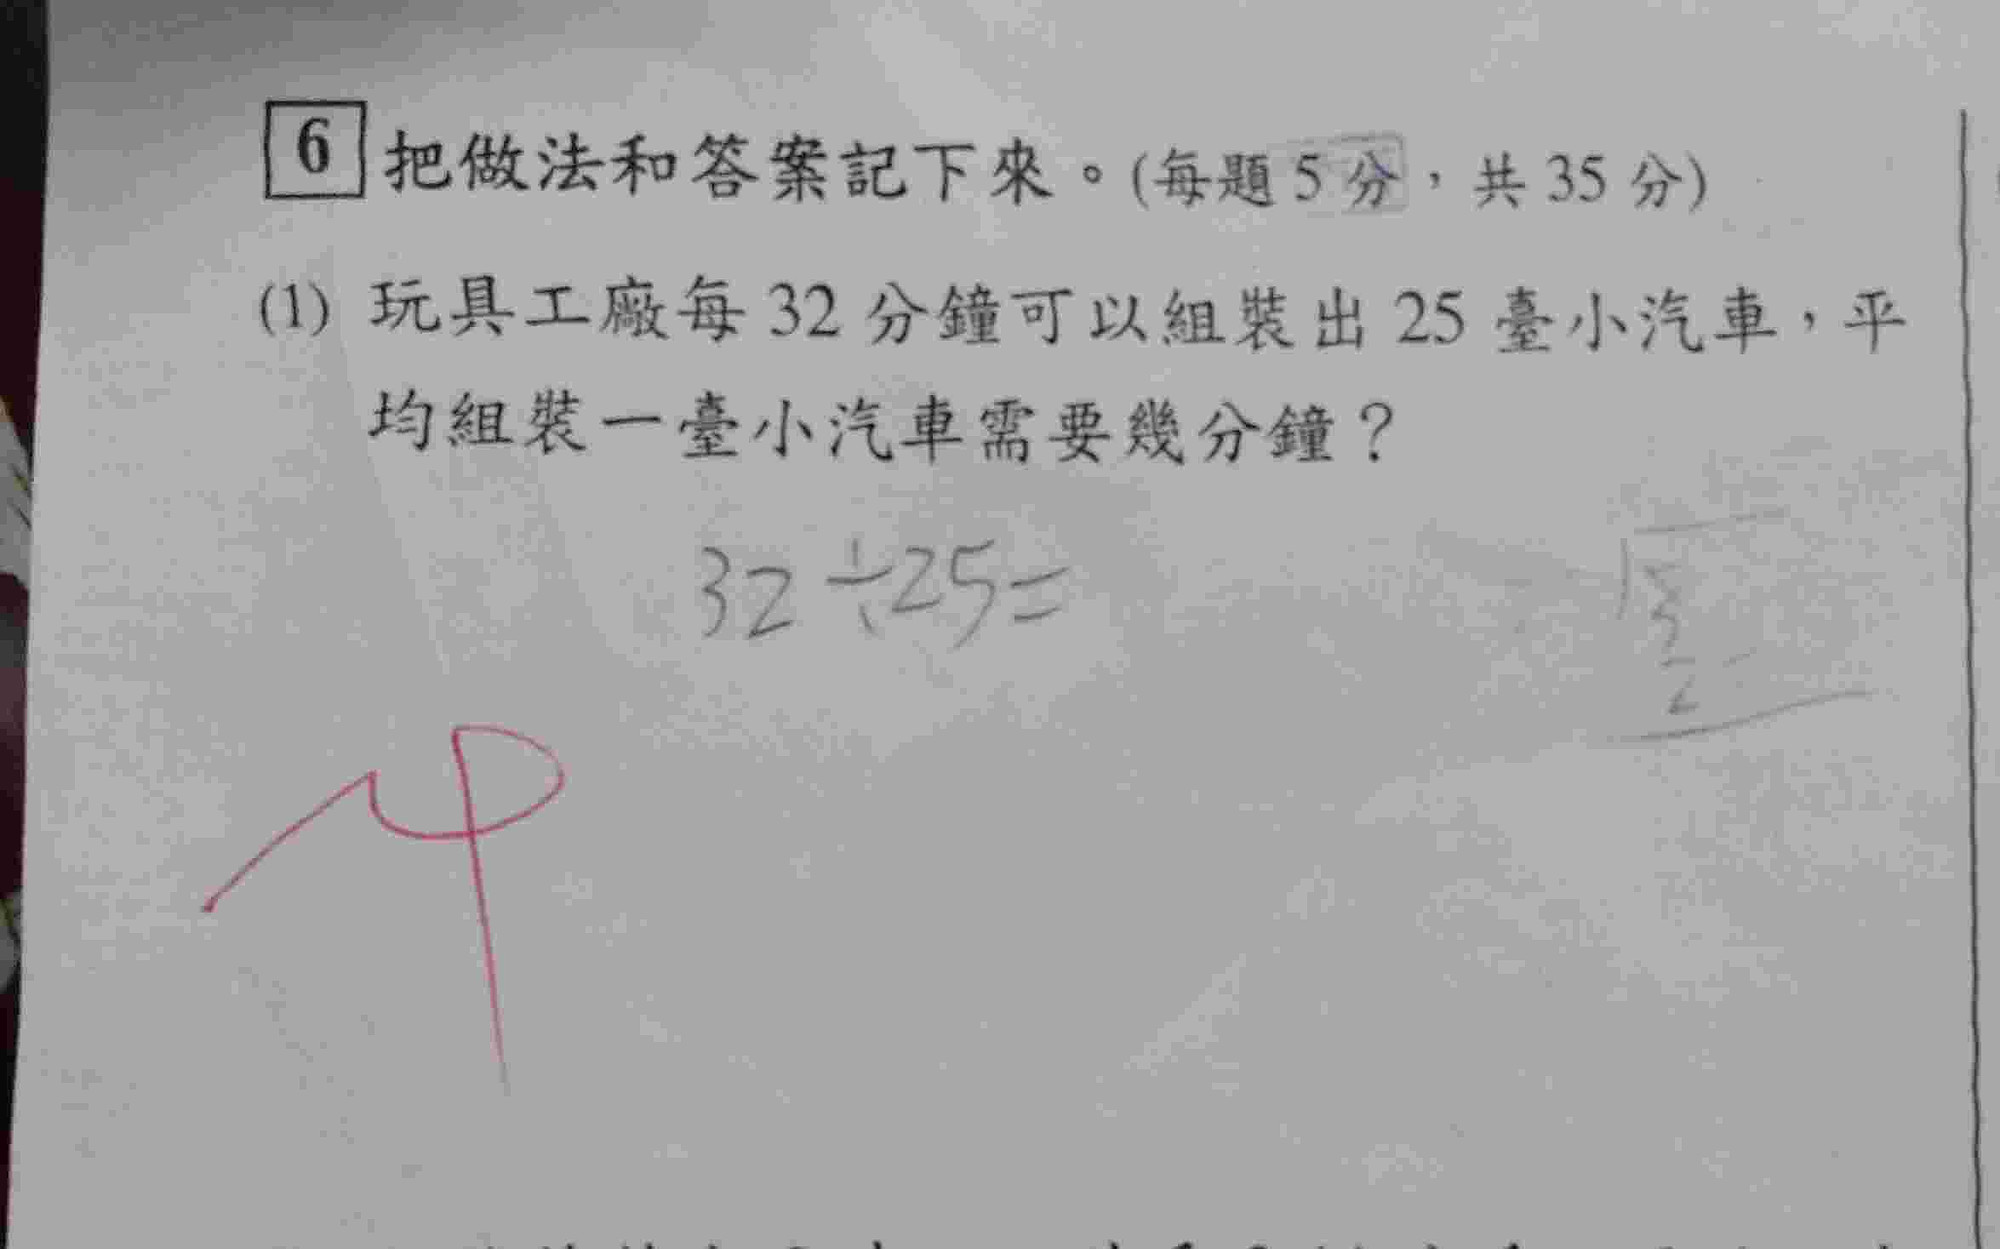 6 把做法和答案記下來。(每題 5 分，共 35 分)
(1) 玩具工廠每 32 分鐘可以組裝出 25 臺小汽車，平
均組裝一臺小汽車需要幾分鐘？
32÷25=